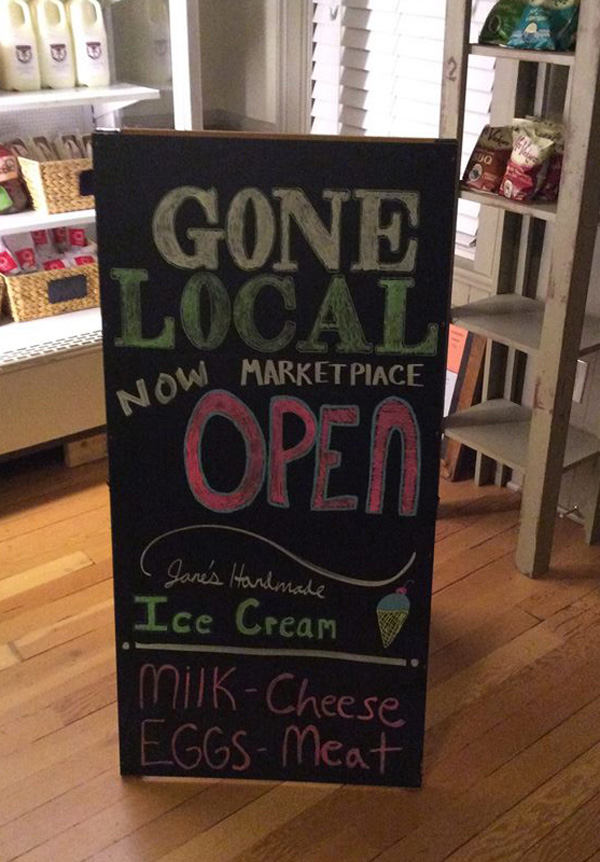 GONE
LOCAL
NOW MARKETPLACE
OPEN
Jane's Handmade
Ice Cream
Milk - Cheese
EGGS - Meat
2